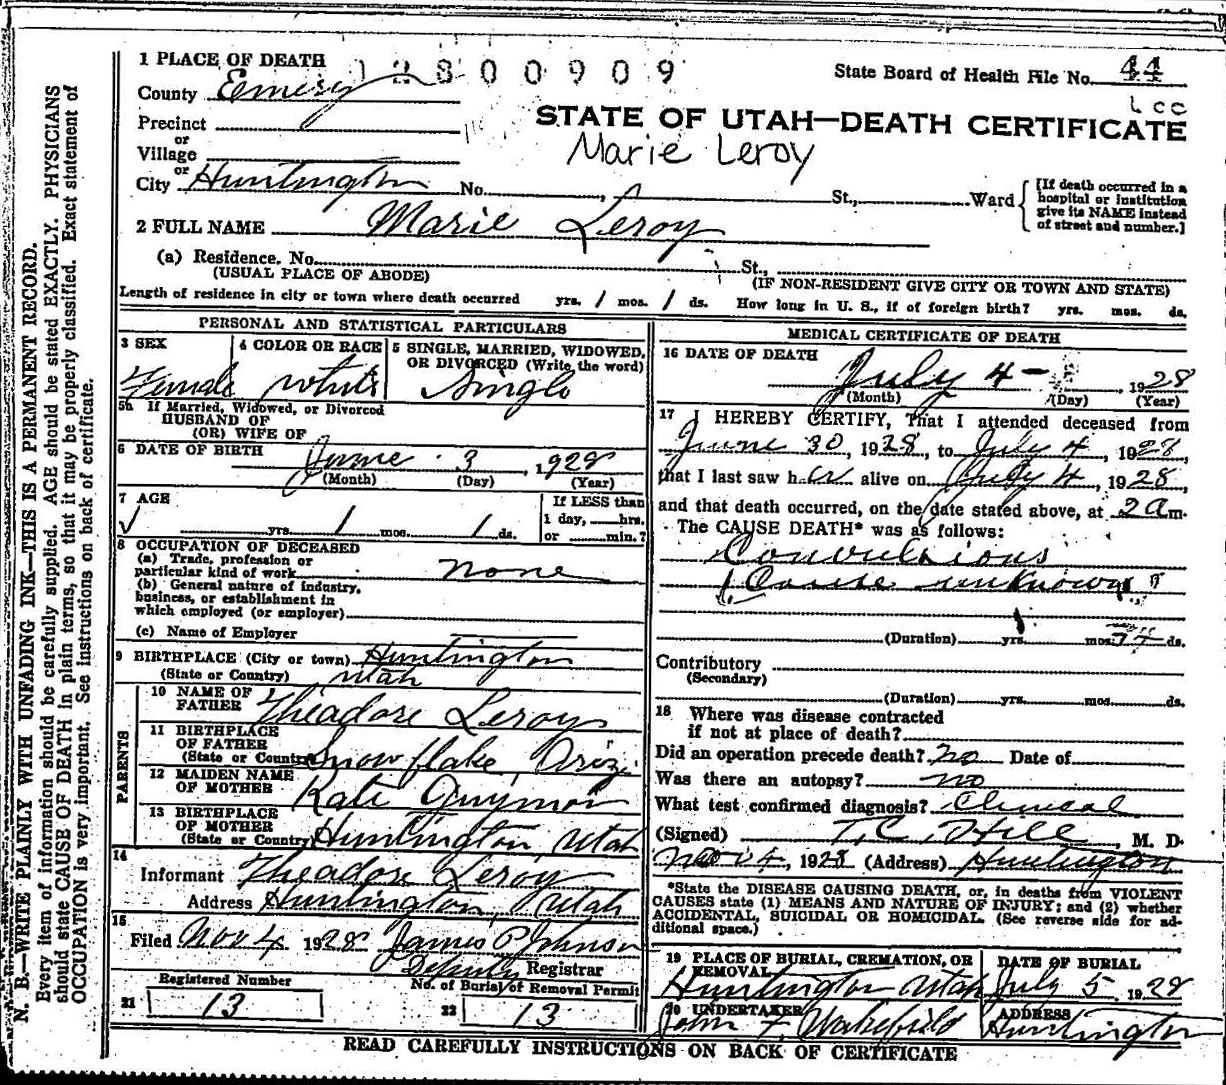 N. B.—WRITE PLAINLY WITH UNFADING INK—THIS IS A PERMANENT RECORD.
Every item of information should be carefully supplied. AGE should be stated EXACTLY. PHYSICIANS
should state CAUSE OF DEATH in plain terms, so that it may be properly classified. Exact statement of
OCCUPATION is very important. See instructions on back of certificate.
1 PLACE OF DEATH
2800909
State Board of Health File No. 44
County Emery
STATE OF UTAH—DEATH CERTIFICATE
Marie Leroy
Precinct
or
Village
or
City Huntington No. St., Ward
[If death occurred in a
hospital or institution
give its NAME instead
of street and number.]
2 FULL NAME Marie Leroy
(a) Residence. No. St.,
(USUAL PLACE OF ABODE) (IF NON-RESIDENT GIVE CITY OR TOWN AND STATE)
Length of residence in city or town where death occurred yrs. 1 mos. 1 ds. How long in U. S., if of foreign birth? yrs. mos. ds.
PERSONAL AND STATISTICAL PARTICULARS
3 SEX 4 COLOR OR RACE 5 SINGLE, MARRIED, WIDOWED,
OR DIVORCED (Write the word)
Female white Single
5b If Married, Widowed, or Divorced
HUSBAND OF
(OR) WIFE OF
6 DATE OF BIRTH June 3, 1928
(Month) (Day) (Year)
7 AGE If LESS than
yrs. 1 mos. 1 ds. 1 day, hrs.
or min.?
8 OCCUPATION OF DECEASED
(a) Trade, profession or
particular kind of work none
(b) General nature of industry,
business, or establishment in
which employed (or employer)
(c) Name of Employer
9 BIRTHPLACE (City or town) Huntington
(State or Country) Utah
PARENTS
10 NAME OF
FATHER Theadore Leroy
11 BIRTHPLACE
OF FATHER
(State or Country) Snowflake, Ariz.
12 MAIDEN NAME
OF MOTHER Kate Guymon
13 BIRTHPLACE
OF MOTHER
(State or Country) Huntington, Utah
14
Informant Theadore Leroy
Address Huntington, Utah
15
Filed Nov 4 1928 James P Johnson
Deputy Registrar
Registered Number No. of Burial of Removal Permit
21 13 22 13
MEDICAL CERTIFICATE OF DEATH
16 DATE OF DEATH
July 4 - 1928
(Month) (Day) (Year)
17 I HEREBY CERTIFY, That I attended deceased from
June 30, 1928, to July 4, 1928,
that I last saw her alive on July 4, 1928,
and that death occurred, on the date stated above, at 2 a m.
The CAUSE DEATH* was as follows:
Convulsions
(Cause unknown)
(Duration) yrs. mos. ds.
Contributory
(Secondary)
(Duration) yrs. mos. ds.
18 Where was disease contracted
if not at place of death?
Did an operation precede death? no Date of
Was there an autopsy? no
What test confirmed diagnosis? Clinical
(Signed) T.C. Hill, M. D.
Nov 4, 1928 (Address) Huntington
*State the DISEASE CAUSING DEATH, or, in deaths from VIOLENT
CAUSES state (1) MEANS AND NATURE OF INJURY; and (2) whether
ACCIDENTAL, SUICIDAL OR HOMICIDAL. (See reverse side for ad-
ditional space.)
19 PLACE OF BURIAL, CREMATION, OR DATE OF BURIAL
REMOVAL
Huntington Utah July 5 1928
20 UNDERTAKER ADDRESS
John F. Wakefield Huntington
READ CAREFULLY INSTRUCTIONS ON BACK OF CERTIFICATE